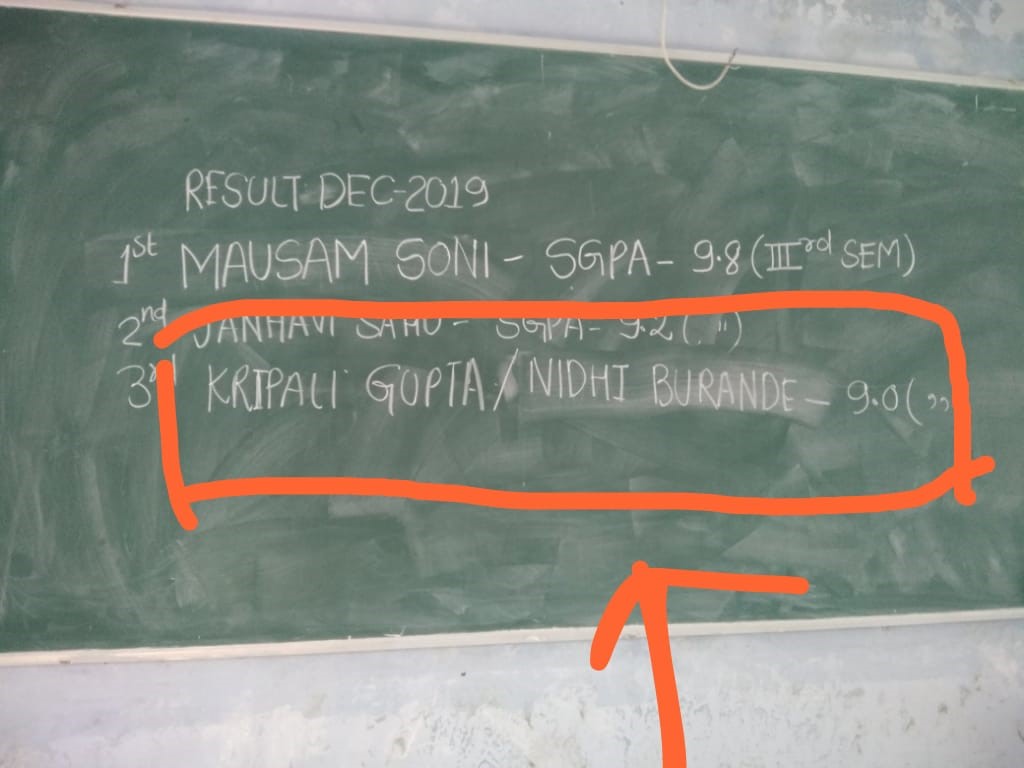 RESULT: DEC-2019
1st MAUSAM SONI - SGPA - 9.8 (IIIrd SEM)
2nd JANHAVI SAHU - SGPA - 9.2 ( " )
3rd KRIPALI GUPTA / NIDHI BURANDE - 9.0 ( ,,